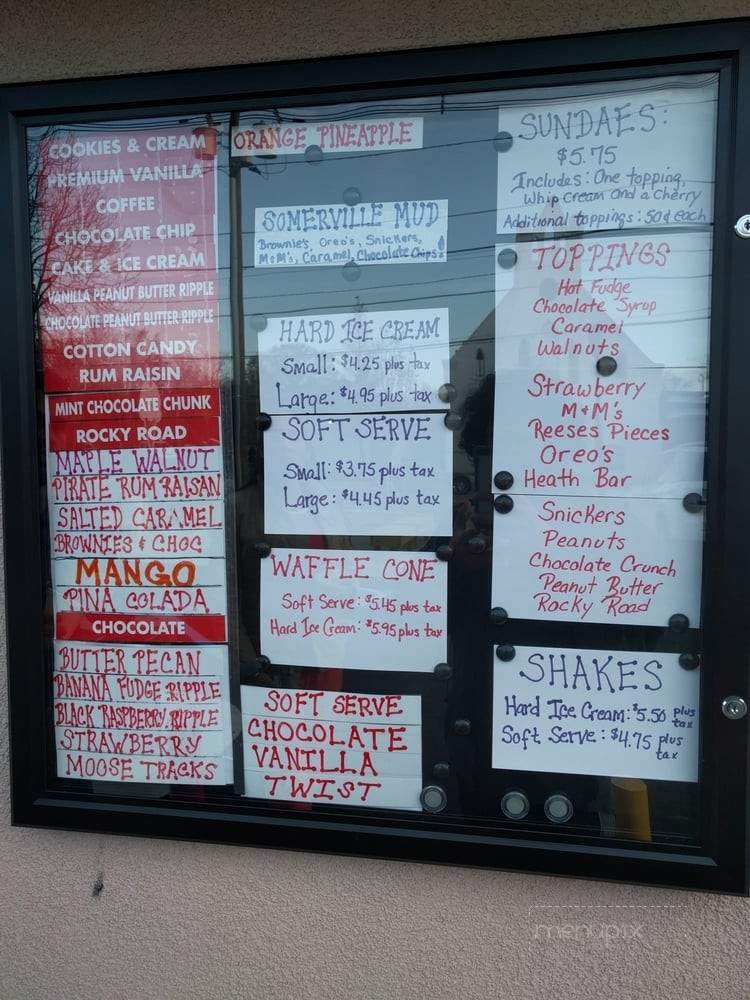 COOKIES & CREAM
PREMIUM VANILLA
COFFEE
CHOCOLATE CHIP
CAKE & ICE CREAM
VANILLA PEANUT BUTTER RIPPLE
CHOCOLATE PEANUT BUTTER RIPPLE
COTTON CANDY
RUM RAISIN
MINT CHOCOLATE CHUNK
ROCKY ROAD
MAPLE WALNUT
PIRATE RUM RAISAN
SALTED CARAMEL
BROWNIES & CHOC
MANGO
PINA COLADA
CHOCOLATE
BUTTER PECAN
BANANA FUDGE RIPPLE
BLACK RASPBERRY RIPPLE
STRAWBERRY
MOOSE TRACKS
ORANGE PINEAPPLE
SOMERVILLE MUD
Brownie's, Oreo's, Snickers,
M&M's, Caramel, Chocolate Chips!
HARD ICE CREAM
Small: $4.25 plus tax
Large: $4.95 plus tax
SOFT SERVE
Small: $3.75 plus tax
Large: $4.45 plus tax
WAFFLE CONE
Soft Serve: $5.45 plus tax
Hard Ice Cream: $5.95 plus tax
SOFT SERVE
CHOCOLATE
VANILLA
TWIST
SUNDAES:
$5.75
Includes: One topping,
Whip cream and a cherry
Additional toppings: 50¢ each
TOPPINGS
Hot Fudge
Chocolate Syrop
Caramel
Walnuts
Strawberry
M&M's
Reeses Pieces
Oreo's
Heath Bar
Snickers
Peanuts
Chocolate Crunch
Peanut Butter
Rocky Road
SHAKES
Hard Ice Cream: $5.50 plus tax
Soft Serve: $4.75 plus tax
menupix